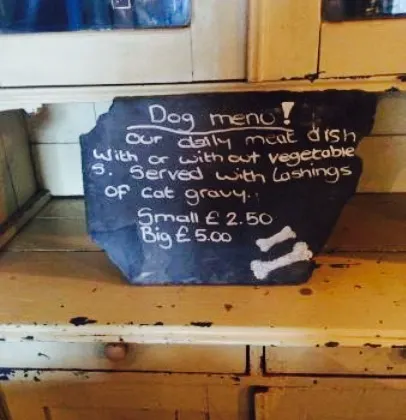 Dog menu!
Our daily meat dish
with or without vegetable
s. Served with lashings
of cat gravy..
Small £ 2.50
Big £ 5.00